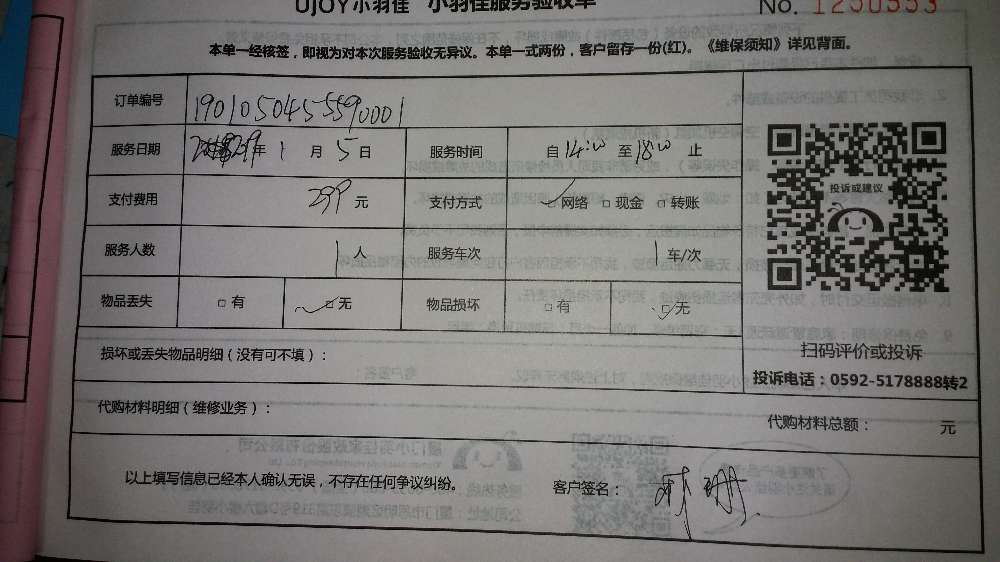 UJOY小羽佳 小羽佳服务验收单
No. 1250553
本单一经核签，即视为对本次服务验收无异议。本单一式两份，客户留存一份(红)。《维保须知》详见背面。
订单编号 1901050455590001
服务日期 2019年1月5日 服务时间 自14:00至18:00止
支付费用 299元 支付方式 ☑网络 □现金 □转账
服务人数 1人 服务车次 1车/次
物品丢失 □有 ☑无 物品损坏 □有 ☑无
投诉或建议
扫码评价或投诉
投诉电话：0592-5178888转2
损坏或丢失物品明细（没有可不填）：
代购材料明细（维修业务）： 代购材料总额： 元
以上填写信息已经本人确认无误，不存在任何争议纠纷。 客户签名： 林珊